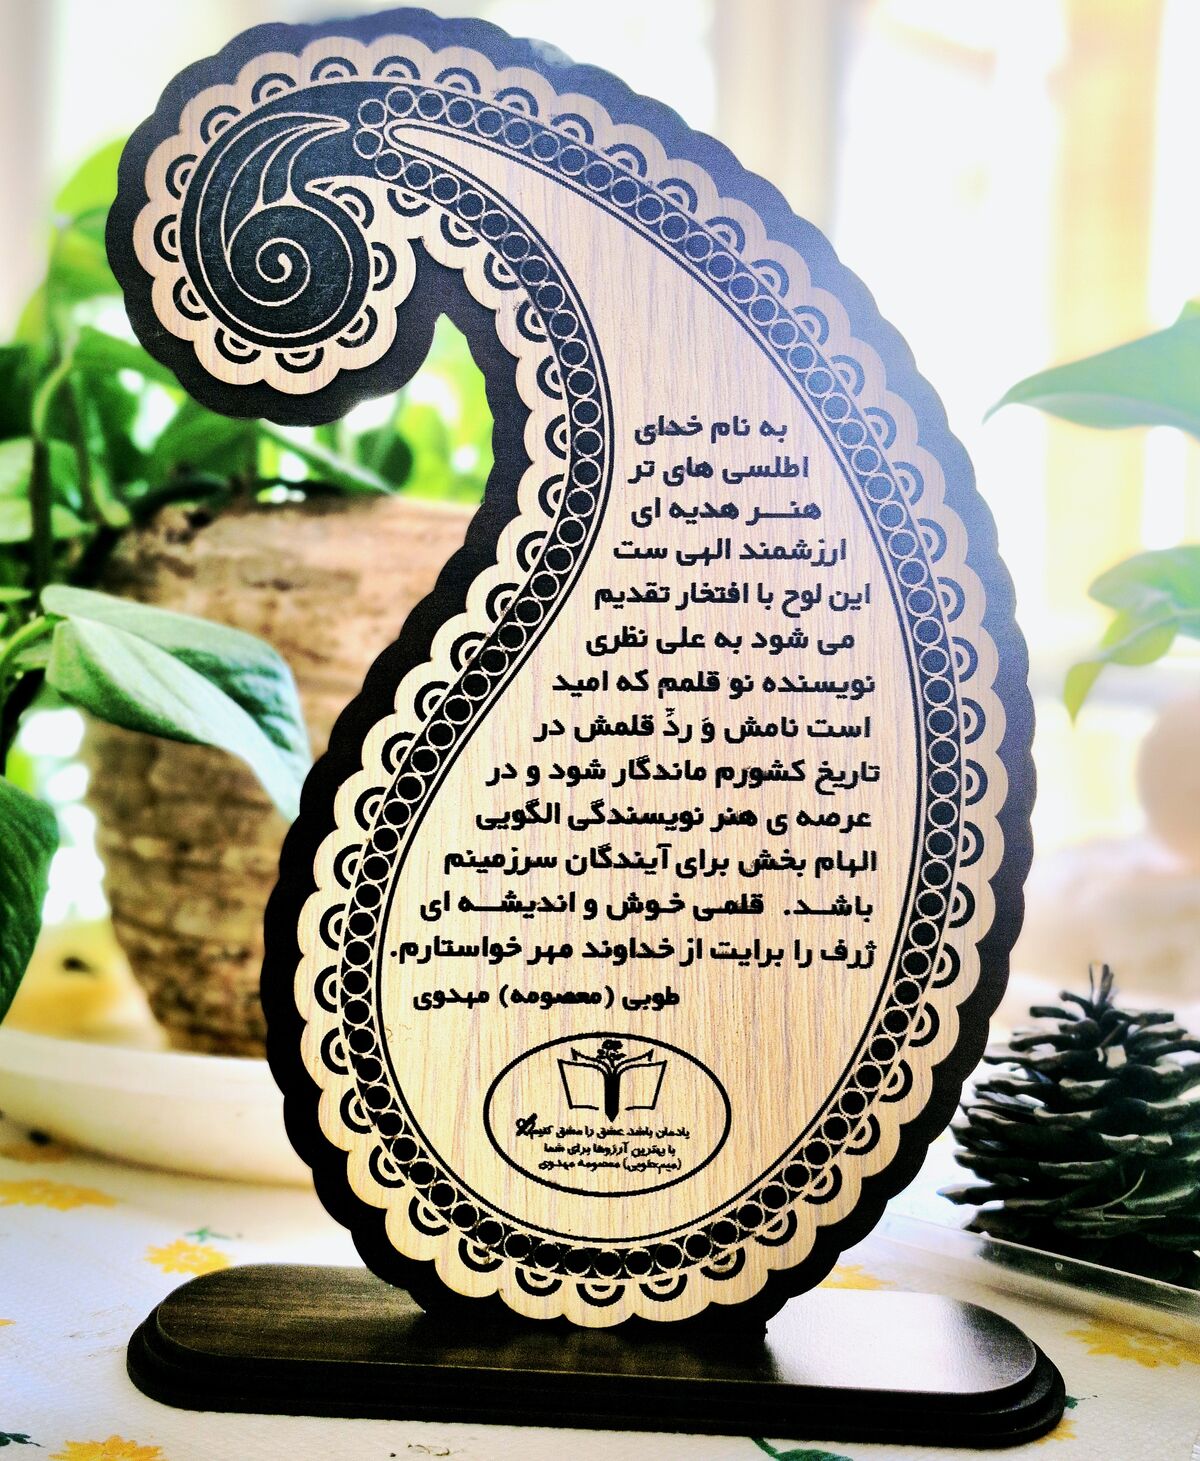 به نام خدای
اطلسی های تر
هنــر هدیه ای
ارزشمند الهی ست
این لوح با افتخار تقدیم
می شود به علی نظری
نویسنده نو قلمم که امید
است نامش وَ ردِّ قلمش در
تاریخ کشورم ماندگار شود و در
عرصه ی هنر نویسندگی الگویی
الهام بخش برای آیندگان سرزمینم
باشــد. قلمی خوش و اندیشــه ای
ژرف را برایت از خداوند مهر خواستارم.
طوبی (معصومه) مهدوی
یادمان باشد عشق را مشق کنیم
با بهترین آرزوها برای شما
(میم.طوبی) معصومه مهدوی